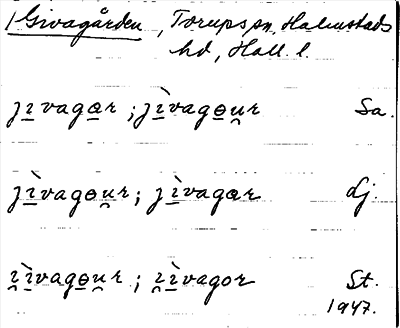 Givagården, Torups sn, Halmstads
hd, Hall. l.
ji̲vagɑ̲r ; jì̲vagɵ̲u̯r Sa.
jì̲vagɵu̯̲r ; jì̲vagɑr Lj.
i̯ì̲vagɵ̲u̯r ; i̯ì̲vagor St.
1947.